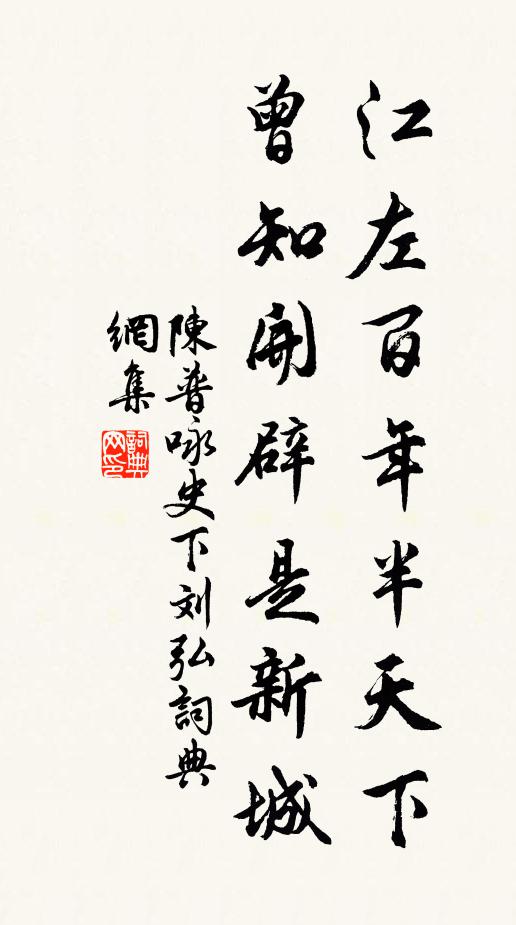 江左百年半天下
曾知開辟是新城
陳普咏史下刘弘詞典
網集
詞典
网印